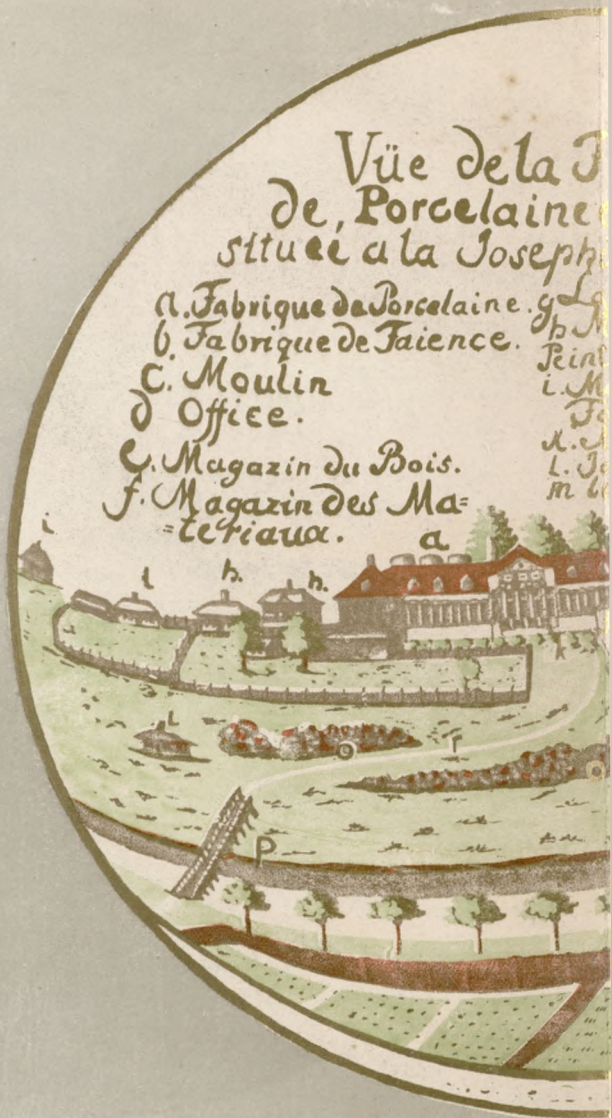 Vüe de la F
de Porcelaine
située a la Joseph
a. Fabrique de Porcelaine.
b Fabrique de Faience.
C. Moulin
d Office.
e. Magazin du Bois.
f. Magazin des Ma=
=teriaux.
g La
h M
Peint
i. M
Fa
L. Jo
m
i
l
h.
h.
a
k
L
o
r
o
P